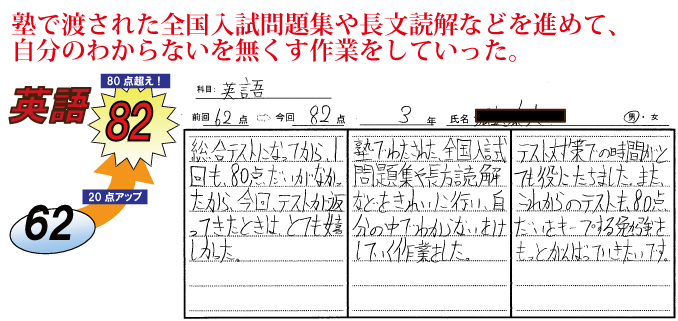 塾で渡された全国入試問題集や長文読解などを進めて、
自分のわからないを無くす作業をしていった。
80点超え！
英語
82
20点アップ
62
科目: 英語
前回 62 点 ⇨ 今回 82 点 3 年 氏名 男・女
総合テストになってから、1
回も、80点だいがなかっ
たから、今回、テストが返
ってきたときは、とても嬉
しかった。
塾でわたされた全国入試
問題集や長方読解
などをきれいに行い、自
分の中でわからないをけ
していく作業をした。
テスト対策での時間がと
ても役にたちました。また、
これからのテストも、80点
だいをキープする勉強を
もっとがんばっていきたいです。